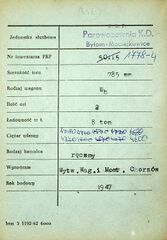 Jednostka służbowa
Parowozownia K.D.
Bytom-Maciejkowice
Nr inwentarza PKP 1778-4
Szerokość toru 785 mm
Rodzaj wagonu Wb
Ilość osi 2
Ładowność w t. 8 ton
Ciężar własny
Rodzaj hamulca ręczny
Wytwórnia Wytw.Wag.i Most. Chorzów
Rok budowy 1947